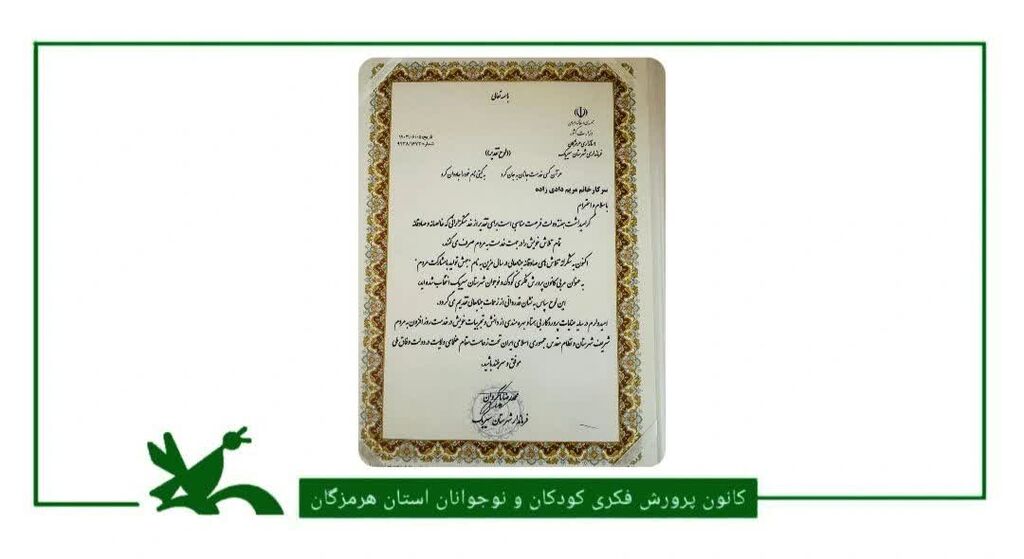 باسمه تعالی
جمهوری اسلامی ایران
وزارت کشور
استانداری هرمزگان
فرمانداری شهرستان سیریک
تاریخ: ۱۴۰۳/۰۶/۰۵
((لوح تقدیر))
هر آن کسی خدمت جانان به جان کرد به گیتی نام خود را جاودان کرد
سرکار خانم مریم دادی زاده
با سلام و احترام
گرامیداشت هفته دولت فرصت مناسبی است برای تقدیر از خدمتگزارانی که خالصانه و صادقانه
تمام تلاش خویش را در جهت خدمت به مردم صرف می کنند.
اکنون به شکرانه تلاش های صادقانه جنابعالی در سال مزین به نام "جهش تولید با مشارکت مردم"
به عنوان مربی کانون پرورش فکری کودک و نوجوان شهرستان سیریک انتخاب شده اید،
این لوح سپاس به نشان قدردانی از زحمات جنابعالی تقدیم می گردد.
امیدوارم در سایه عنایات پروردگار بی همتا و بهره مندی از دانش و تجربیات خویش در خدمت روز افزون به مردم
شریف شهرستان و نظام مقدس جمهوری اسلامی ایران تحت زعامت مقام عظمای ولایت در دولت وفاق ملی
موفق و سربلند باشید.
فرماندار شهرستان سیریک
کانون پرورش فکری کودکان و نوجوانان استان هرمزگان